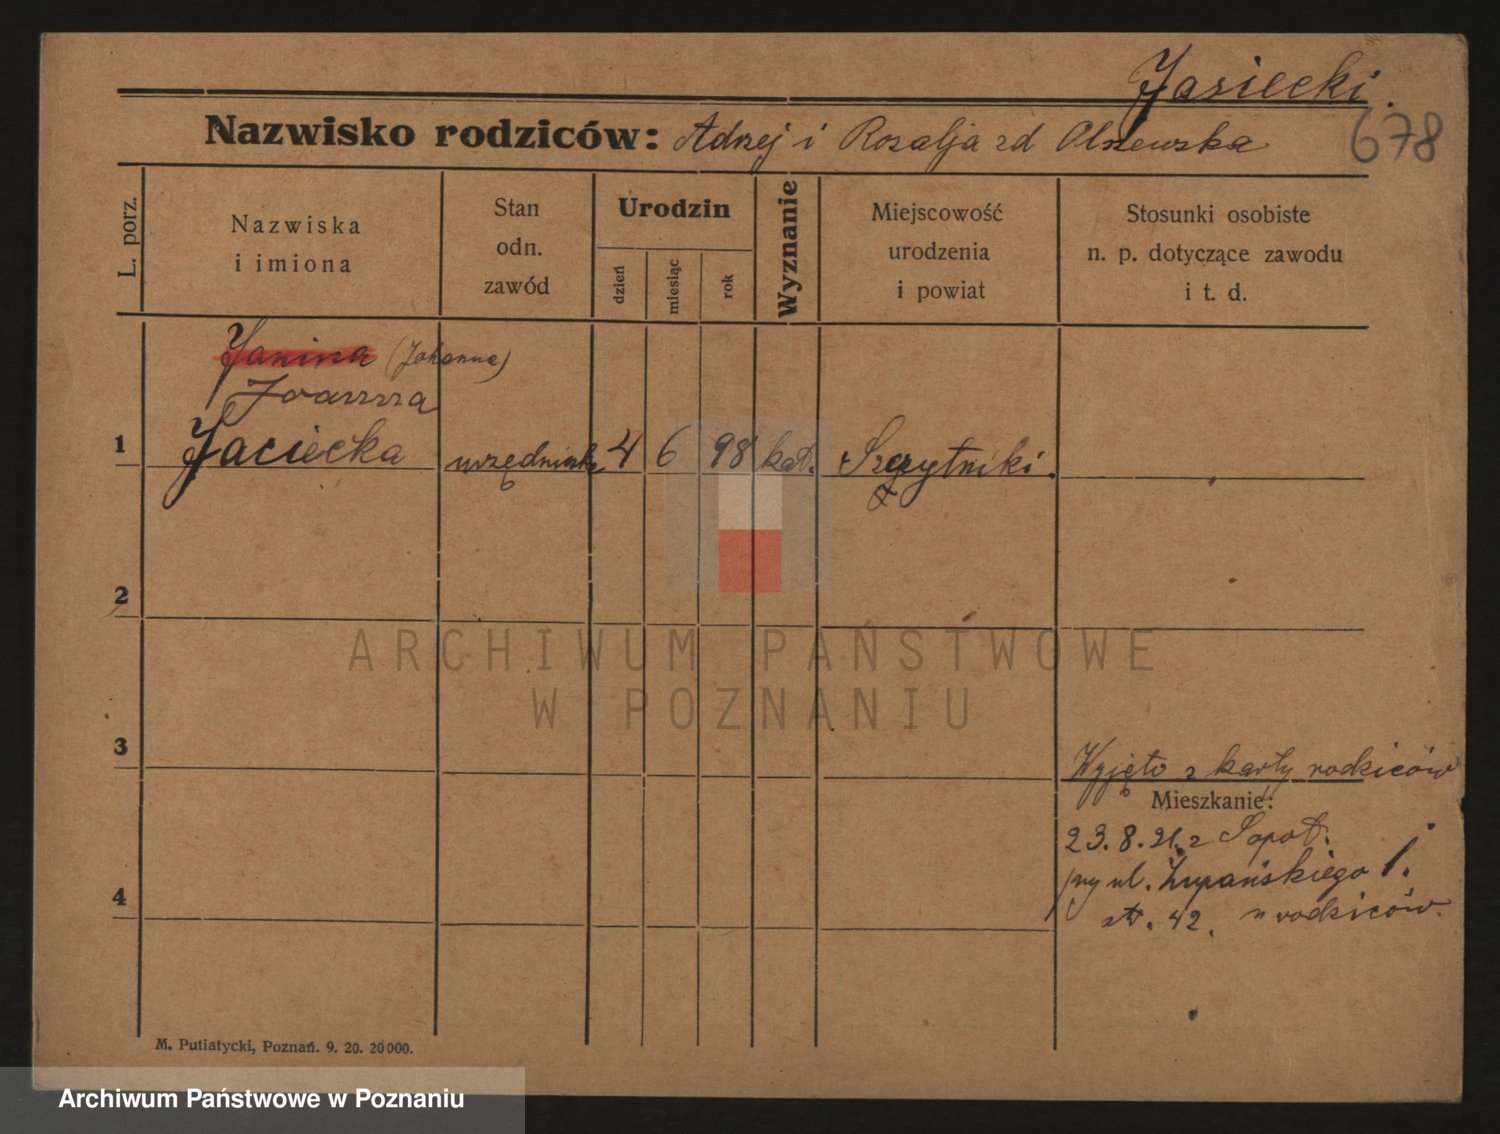 Jasiecki.
Nazwisko rodziców: Adrzej i Rozalja zd Olszewska
678
L. porz.
Nazwiska
i imiona
Stan
odn.
zawód
Urodzin
dzień
miesiąc
rok
Wyznanie
Miejscowość
urodzenia
i powiat
Stosunki osobiste
n. p. dotyczące zawodu
i t. d.
Janina (Johanna)
Joanna
1 Jaciecka urzędniczka 4 6 98 kat. Szczytniki.
2
ARCHIWUM PAŃSTWOWE
W POZNANIU
3
Wyjęto z karty rodziców
Mieszkanie:
23.8.21. z Sopot.
przy ul. Żupańskiego 1.
4
str. 42. u rodziców.
M. Putiatycki, Poznań. 9. 20. 20000.
Archiwum Państwowe w Poznaniu